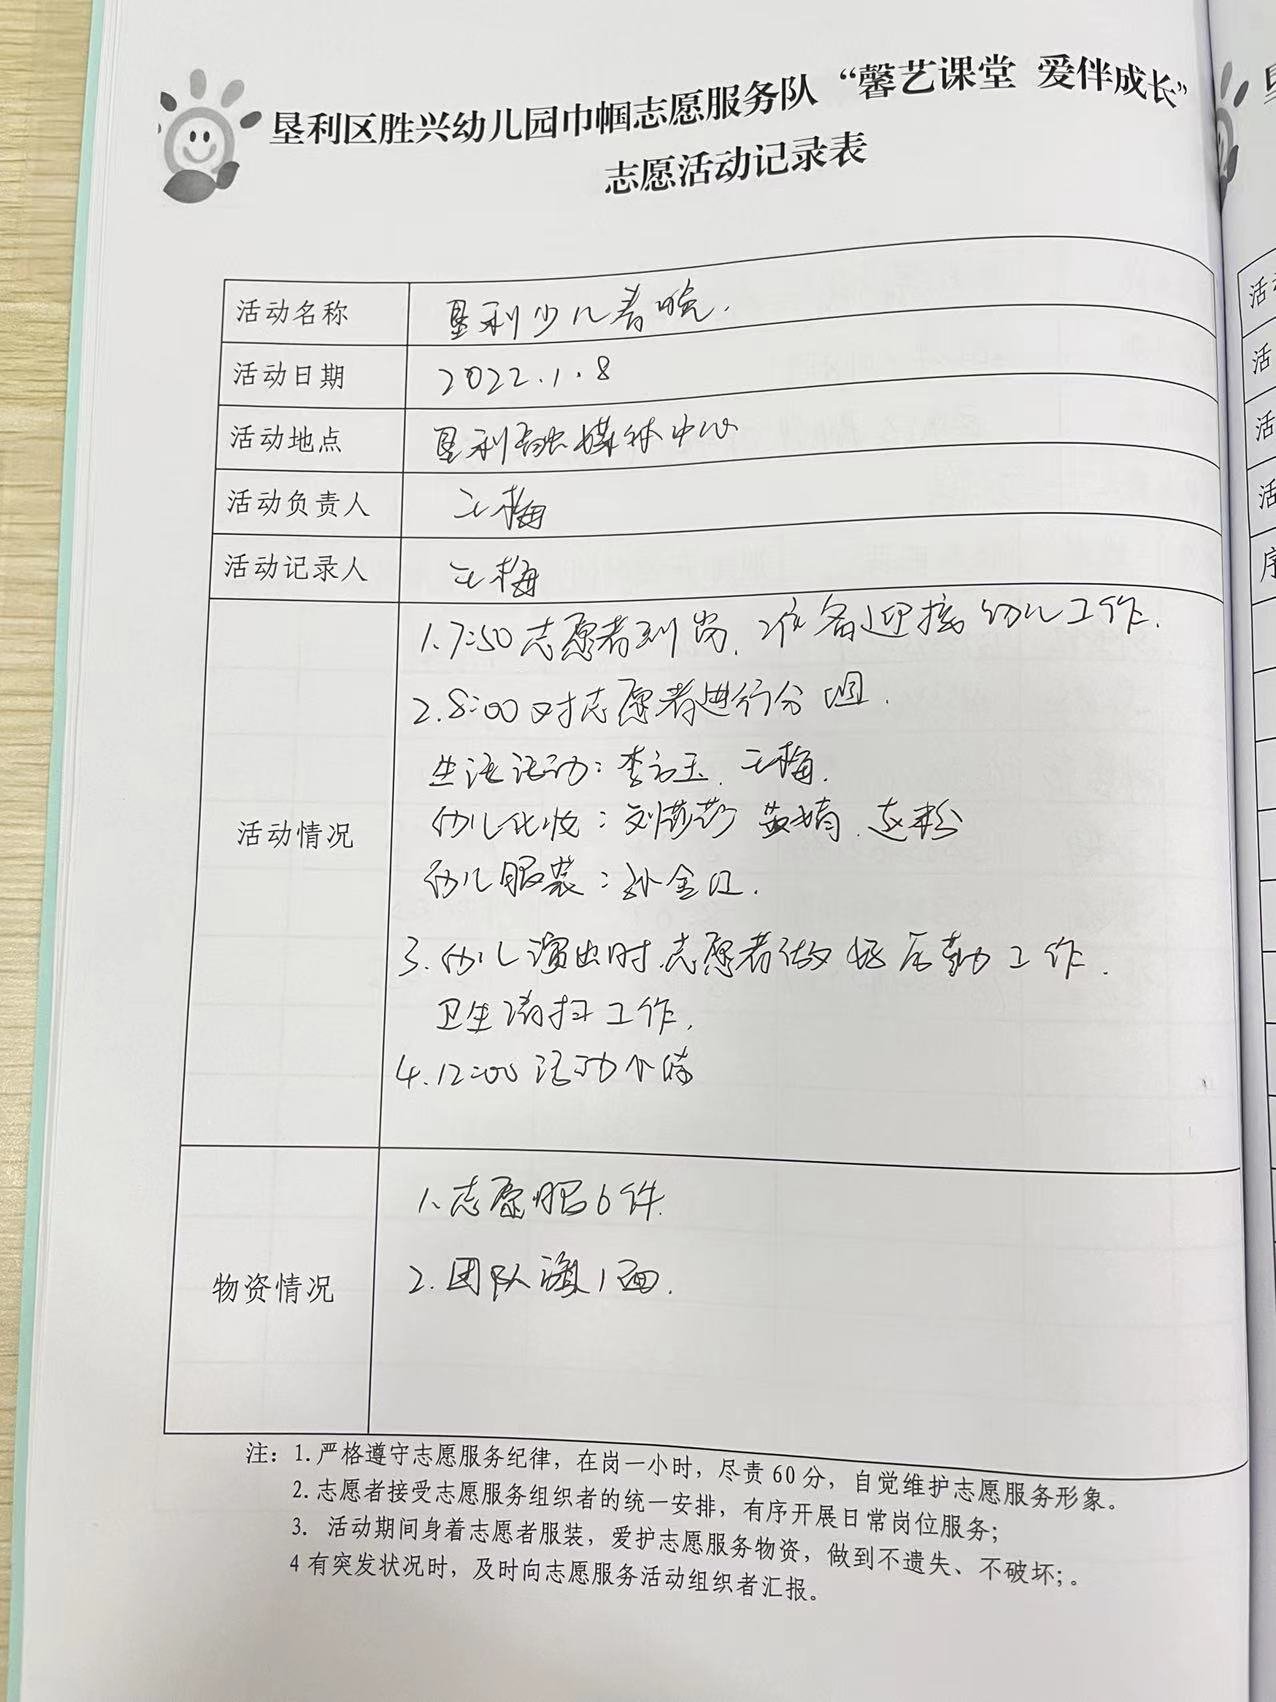 垦利区胜兴幼儿园巾帼志愿服务队“馨艺课堂 爱伴成长”
志愿活动记录表
活动名称 垦利少儿春晚.
活动日期 2022.1.8
活动地点 垦利融媒体中心
活动负责人 王梅
活动记录人 王梅
活动情况
1.7:50志愿者到岗,准备迎接幼儿工作.
2.8:00对志愿者进行分组.
生活活动:李 玉、王梅.
幼儿化妆:刘莎莎 黄婧、赵粉
幼儿服装:孙金红.
3.幼儿演出时,志愿者做好后勤工作.
卫生清扫工作.
4.12:00活动小结
物资情况
1、志愿服6件.
2.团队旗1面.
注：1.严格遵守志愿服务纪律，在岗一小时，尽责60分，自觉维护志愿服务形象。
2.志愿者接受志愿服务组织者的统一安排，有序开展日常岗位服务；
3. 活动期间身着志愿者服装，爱护志愿服务物资，做到不遗失、不破坏;。
4有突发状况时，及时向志愿服务活动组织者汇报。